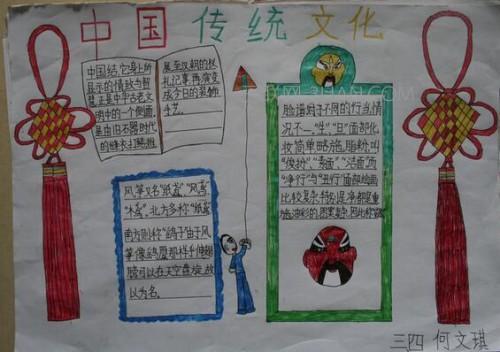 中国传统文化
中国结,它身上所
显示的情致与智
慧正是中华古老文
明中的一个侧面。
是由旧石器时代
的缝衣打结,推
展至汉朝的仪
礼记事,再演变
成今日的装饰
手艺。
风筝又名"纸鸢""风鸢"
"木鸢",北方多称"纸鸢"
南方则称"鹞子"由于风
筝像鸟鹰那样平伸翅
膀可以在天空盘旋,故
以为名。
脸谱对于不同的行当情
况不一,"生","旦"面部化
妆简单略施脂粉叫
"俊扮""素面""洁面"而
"净行"与"丑行"面部绘画
比较复杂特别是净都是重
施油彩的,图案复杂,因此称
三四 何文琪